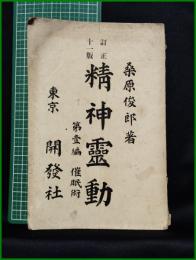 桑原俊郎著
訂正
十一版
精神靈動
第壹編 催眠術
東京 開發社